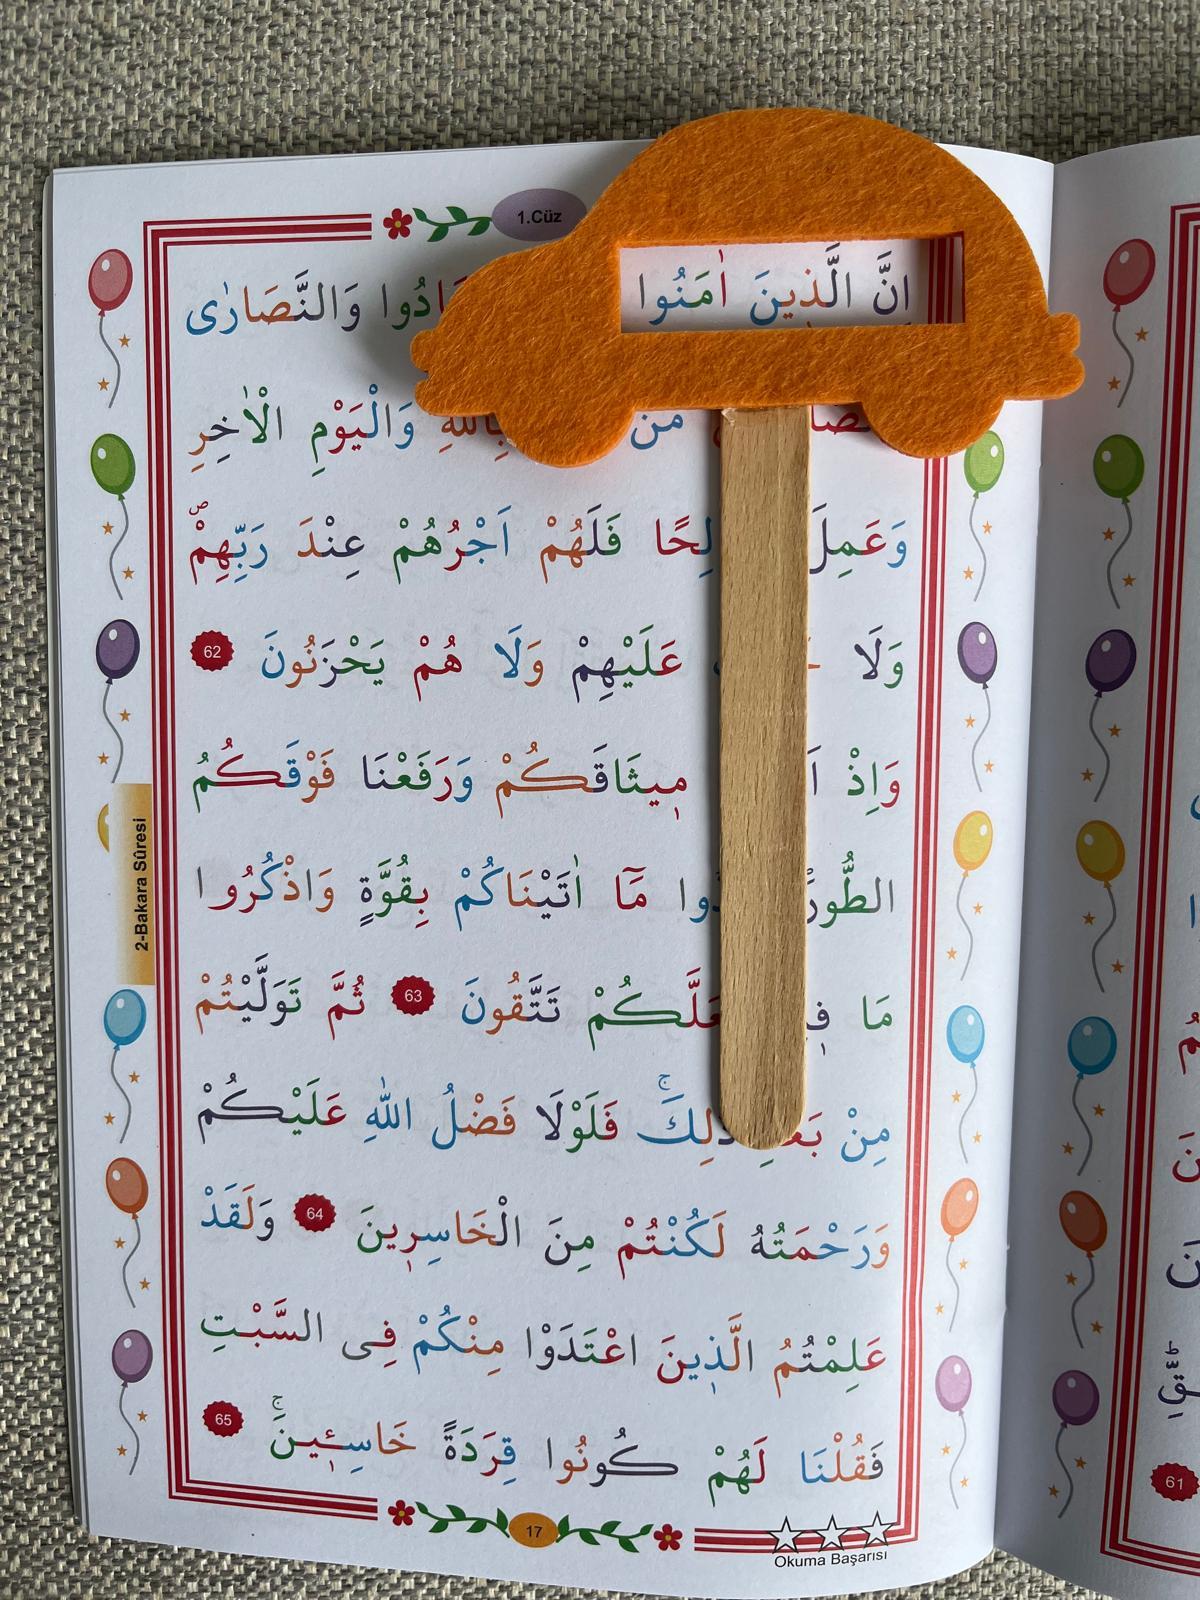 1.Cüz
اِنَّ الَّذينَ اٰمَنُوا وَالنَّصَارٰى
مَنْ بِاللّٰهِ وَالْيَوْمِ الْاٰخِرِ
وَعَمِلَ فَلَهُمْ اَجْرُهُمْ عِنْدَ رَبِّهِمْۖ
وَلَا عَلَيْهِمْ وَلَا هُمْ يَحْزَنُونَ 62
وَاِذْ مٖيثَاقَكُمْ وَرَفَعْنَا فَوْقَكُمُ
الطُّورَ مَٓا اٰتَيْنَاكُمْ بِقُوَّةٍ وَاذْكُرُوا
مَا تَتَّقُونَ 63 ثُمَّ تَوَلَّيْتُمْ
مِنْ ذٰلِكَۚ فَلَوْلَا فَضْلُ اللّٰهِ عَلَيْكُمْ
وَرَحْمَتُهُ لَكُنْتُمْ مِنَ الْخَاسِرٖينَ 64 وَلَقَدْ
عَلِمْتُمُ الَّذٖينَ اعْتَدَوْا مِنْكُمْ فِى السَّبْتِ
فَقُلْنَا لَهُمْ كُونُوا قِرَدَةً خَاسِـٖٔينَۚ 65
2-Bakara Sûresi
17
Okuma Başarısı
61